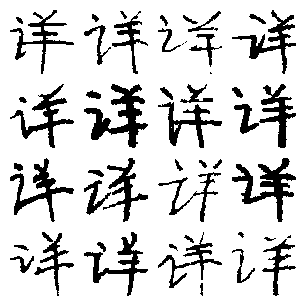 详详详详
详详详详
详详详详
详详详详